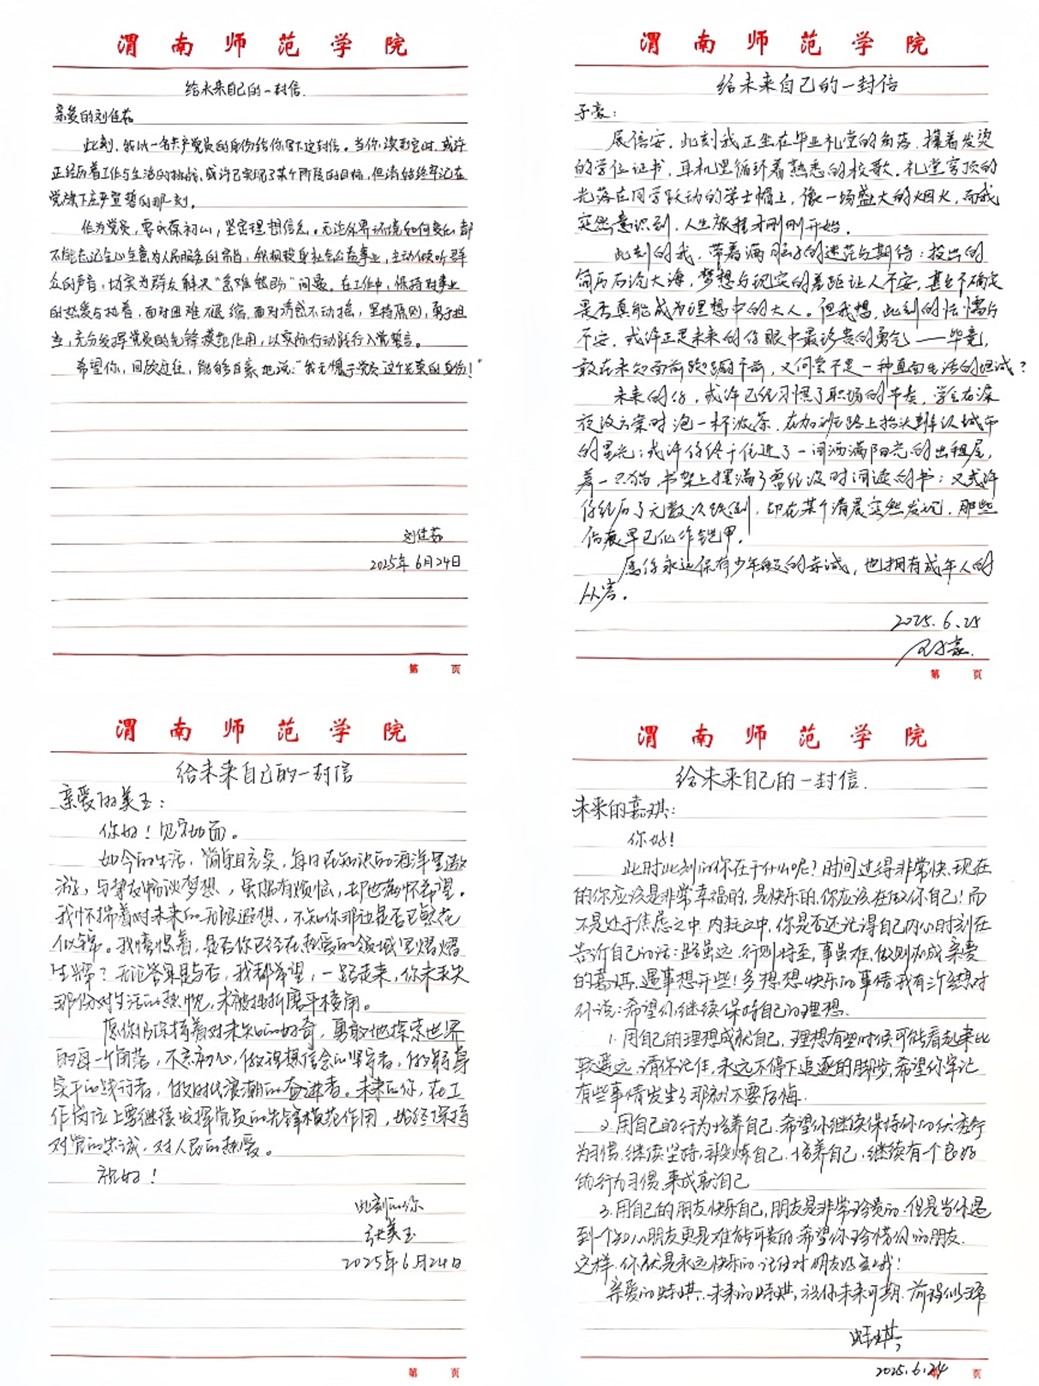 渭南师范学院
给未来自己的一封信
亲爱的刘佳茹
此刻，我以一名共产党员的身份给你写下这封信。当你读到它时，或许
正经历着工作与生活的挑战，或许已实现了某个阶段的目标，但请始终牢记在
党旗下庄严宣誓的那一刻。
作为党员，要永葆初心，坚定理想信念。无论外界环境如何变化，都
不能忘记全心全意为人民服务的宗旨，积极投身社会公益事业，主动倾听群
众的声音，切实为群众解决“急难愁盼”问题。在工作中，保持对事业
的热爱与执着，面对困难不退缩，面对诱惑不动摇，坚持原则，勇于担
当，充分发挥党员的先锋模范作用，以实际行动践行入党誓言。
希望你，回放过往，能够自豪地说：“我无愧于党员这个光荣的身份！”
刘佳茹
2025年6月24日
第 页
渭南师范学院
给未来自己的一封信
子豪：
展信安，此刻我正坐在毕业礼堂的角落，握着发烫
的学位证书，耳机里循环着熟悉的校歌。礼堂穹顶的
光落在同学跃动的学士帽上，像一场盛大的烟火，而我
突然意识到，人生旅程才刚刚开始。
此刻的我，带着满腔的迷茫与期待：投出的
简历石沉大海，梦想与现实的差距让人不安，甚至不确定
是否真能成为理想中的大人。但我想，此刻的怯懦与
不安，或许正是未来的你眼中最珍贵的勇气——毕竟，
敢在未知面前踌躇不前，又何尝不是一种直面生活的坦诚？
未来的你，或许已经习惯了职场的节奏，学会在深
夜改方案时泡一杯浓茶，在加班路上抬头辨认城市
的星光；或许你终于住进了一间洒满阳光的出租屋，
养一只猫，书架上摆满了曾经没时间读的书；又或许
你经历了无数次跌倒，却在某个清晨突然发现，那些
伤痕早已化作铠甲。
愿你永远保有少年般的赤诚，也拥有成年人的
从容。
2025.6.25
第 页
渭南师范学院
给未来自己的一封信
亲爱的美玉：
你好！见字如面。
如今的生活，简单且充实，每日在知识的海洋里遨
游，与挚友畅谈梦想，虽偶有烦恼，却也满怀希望。
我怀揣着对未来的无限遐想，不知你那边是否已繁花
似锦。我憧憬着，是否你已经在热爱的领域里熠熠
生辉？无论答案是与否，我都希望，一路走来，你未丢失
那份对生活的热忱，未被挫折磨平棱角。
愿你仍保持着对未知的好奇，勇敢地探索世界
的每一个角落，不忘初心，做理想信念的坚守者，做躬身
实干的践行者，做时代浪潮的奋进者。未来的你，在工
作岗位上要继续发挥党员的先锋模范作用，始终保持
对党的忠诚，对人民的热爱。
祝好！
此刻的你
张美玉
2025年6月24日
第 页
渭南师范学院
给未来自己的一封信.
未来的嘉琪：
你好！
此时此刻的你在干什么呢？时间过得非常快，现在
的你应该是非常幸福的，是快乐的，你应该在做你自己！而
不是处于焦虑之中，内耗之中，你是否还记得自己内心时刻在
告诉自己的话：路虽远，行则将至，事虽难，做则必成。亲爱
的嘉琪，遇事想开些！多想想快乐的事情，我有许多想对
你说：希望你继续保持自己的理想.
1.用自己的理想成就自己，理想有些时候可能看起来比
较遥远，请你记住，永远不停下追逐的脚步，希望你牢记
有些事情发生了那就不要后悔.
2.用自己的行为培养自己.希望你继续保持你的优秀行
为习惯，继续坚持，锻炼自己，培养自己，继续有个良好
的行为习惯，来成就自己
3.用自己的朋友快乐自己，朋友是非常珍贵的，但是当你遇
到一个知心朋友更是难能可贵的，希望你珍惜你的朋友.
这样，你就是永远快乐的，记住对朋友好点哦！
亲爱的嘉琪，未来的嘉琪，祝你未来可期，前程似锦
嘉琪
2025.6.24
第 页